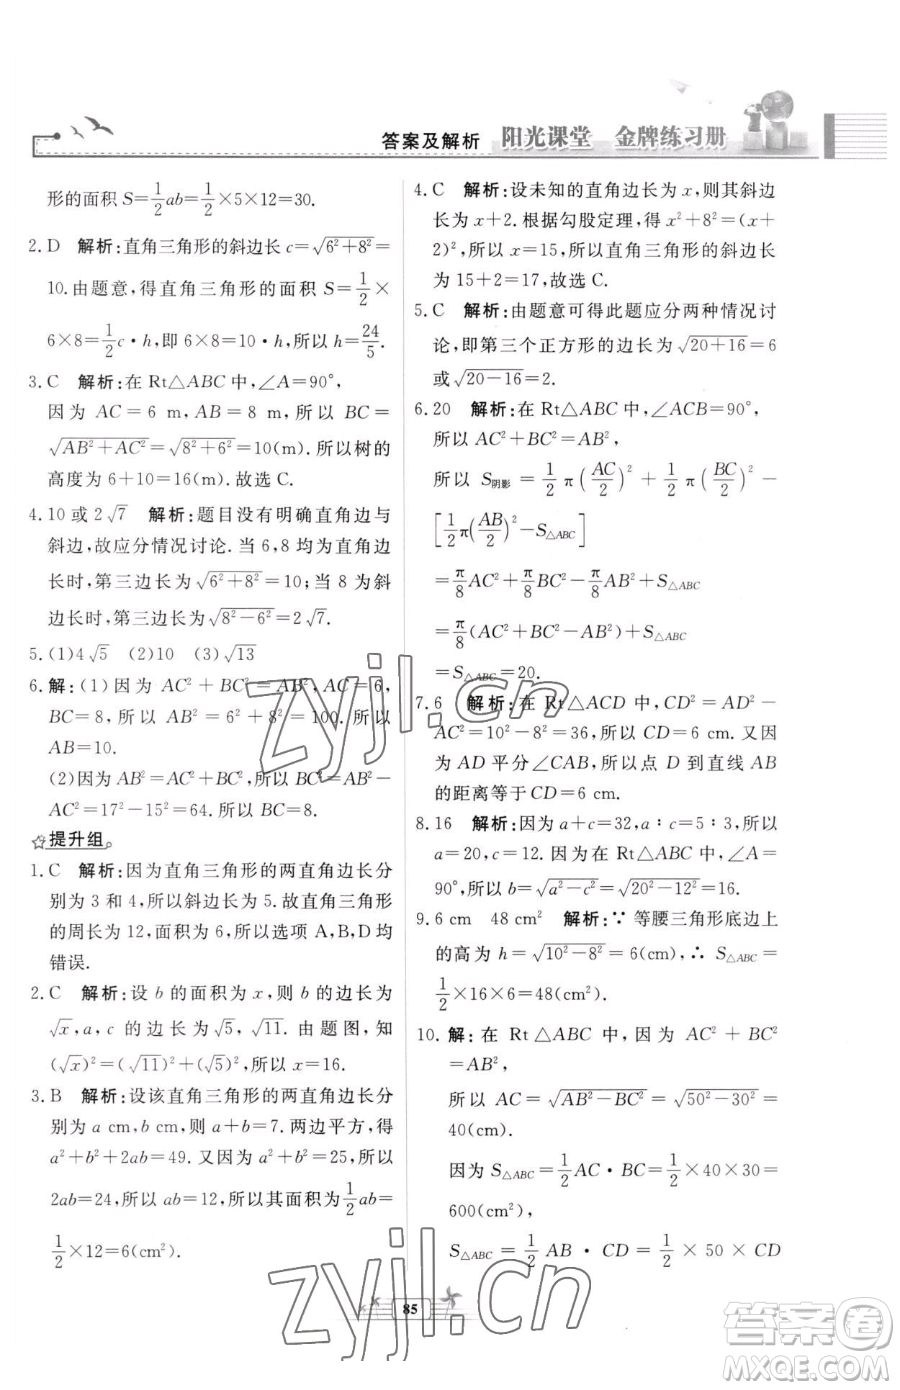 答案及解析 阳光课堂 金牌练习册
形的面积 S=1/2ab=1/2×5×12=30.
2. D 解析:直角三角形的斜边长 c=√(6²+8²)=
10. 由题意,得直角三角形的面积 S=1/2×
6×8=1/2c·h,即 6×8=1/2×10·h,所以 h=24/5.
3. C 解析:在 Rt△ABC 中,∠A=90°,
因为 AC=6 m,AB=8 m,所以 BC=
√(AB²+AC²)=√(8²+6²)=10(m). 所以树的
高度为 6+10=16(m). 故选 C.
4. 10 或 2√7 解析:题目没有明确直角边与
斜边,故应分情况讨论. 当 6,8 均为直角边
长时,第三边长为√(6²+8²)=10;当 8 为斜
边长时,第三边长为√(8²-6²)=2√7.
5. (1)4√5 (2)10 (3)√13
6. 解:(1)因为 AC²+BC²=AB²,AC=6,
BC=8,所以 AB²=6²+8²=100. 所以
AB=10.
(2)因为 AB²=AC²+BC²,所以 BC²=AB²-
AC²=17²-15²=64. 所以 BC=8.
提升组
1. C 解析:因为直角三角形的两直角边长分
别为 3 和 4,所以斜边长为 5. 故直角三角形
的周长为 12,面积为 6,所以选项 A,B,D 均
错误.
2. C 解析:设 b 的面积为 x,则 b 的边长为
√x,a,c 的边长为√5,√11. 由题图,知
(√x)²=(√11)²+(√5)²,所以 x=16.
3. B 解析:设该直角三角形的两直角边长分
别为 a cm,b cm,则 a+b=7. 两边平方,得
a²+b²+2ab=49. 又因为 a²+b²=25,所以
2ab=24,所以 ab=12,所以其面积为1/2ab=
1/2×12=6(cm²).
4. C 解析:设未知的直角边长为 x,则其斜边
长为 x+2. 根据勾股定理,得 x²+8²=(x+
2)²,所以 x=15,所以直角三角形的斜边长
为 15+2=17,故选 C.
5. C 解析:由题意可得此题应分两种情况讨
论,即第三个正方形的边长为√(20+16)=6
或√(20-16)=2.
6. 20 解析:在 Rt△ABC 中,∠ACB=90°,
所以 AC²+BC²=AB²,
所以 S阴影=1/2π(AC/2)²+1/2π(BC/2)²-
[1/2π(AB/2)²-S△ABC]
=π/8AC²+π/8BC²-π/8AB²+S△ABC
=π/8(AC²+BC²-AB²)+S△ABC
=S△ABC=20.
7. 6 解析:在 Rt△ACD 中,CD²=AD²-
AC²=10²-8²=36,所以 CD=6 cm. 又因
为 AD 平分∠CAB,所以点 D 到直线 AB
的距离等于 CD=6 cm.
8. 16 解析:因为 a+c=32,a∶c=5∶3,所以
a=20,c=12. 因为在 Rt△ABC 中,∠A=
90°,所以 b=√(a²-c²)=√(20²-12²)=16.
9. 6 cm 48 cm² 解析:∵ 等腰三角形底边上
的高为 h=√(10²-8²)=6(cm),∴ S△ABC=
1/2×16×6=48(cm²).
10. 解:在 Rt△ABC 中,因为 AC²+BC²
=AB²,
所以 AC=√(AB²-BC²)=√(50²-30²)=
40(cm).
因为 S△ABC=1/2AC·BC=1/2×40×30=
600(cm²),
S△ABC=1/2AB·CD=1/2×50×CD
85
zyjl.cn
zyjl.cn
答案圈
MXQE.COM